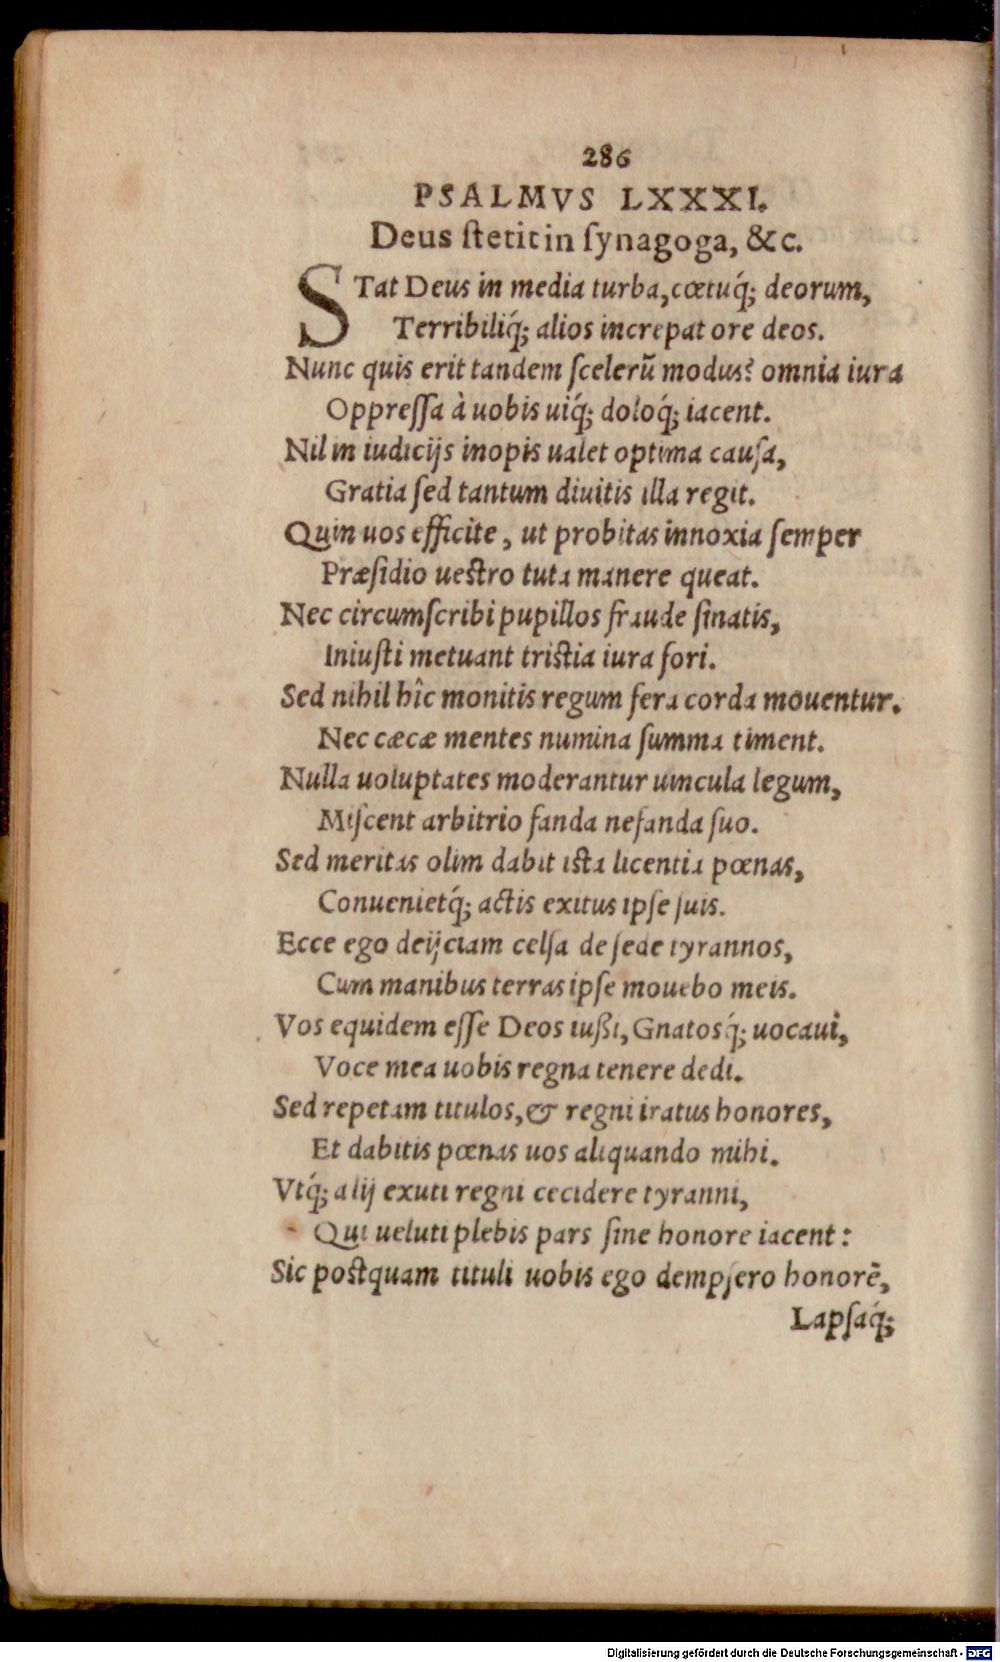 286
PSALMVS LXXXI.
Deus ſtetit in ſynagoga, &c.
STat Deus in media turba, cœtuq́; deorum,
Terribiliq́; alios increpat ore deos.
Nunc quis erit tandem ſcelerū modus? omnia iura
Oppreſſa à uobis uiq́; doloq́; iacent.
Nil in iudicijs inopis ualet optima cauſa,
Gratia ſed tantum diuitis illa regit.
Quin uos efficite, ut probitas innoxia ſemper
Præſidio ueſtro tuta manere queat.
Nec circumſcribi pupillos fraude ſinatis,
Iniuſti metuant triſtia iura fori.
Sed nihil hîc monitis regum fera corda mouentur.
Nec cæcæ mentes numina ſumma timent.
Nulla uoluptates moderantur uincula legum,
Miſcent arbitrio fanda nefanda ſuo.
Sed meritas olim dabit iſta licentia pœnas,
Conuenietq́; actis exitus ipſe ſuis.
Ecce ego deijciam celſa de ſede tyrannos,
Cum manibus terras ipſe mouebo meis.
Vos equidem eſſe Deos iußi, Gnatosq́; uocaui,
Voce mea uobis regna tenere dedi.
Sed repetam titulos, & regni iratus honores,
Et dabitis pœnas uos aliquando mihi.
Vtq́; alij exuti regni cecidere tyranni,
Qui ueluti plebis pars ſine honore iacent:
Sic poſtquam tituli uobis ego dempſero honorē,
Lapſaq́;
Digitalisierung gefördert durch die Deutsche Forschungsgemeinschaft - DFG